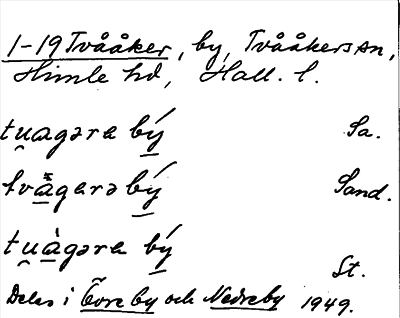 1-19 Tvååker, by, Tvååkers sn,
Himle hd, Hall. l.
tu̯agəra bý Sa.
tvågərə bý Sand.
tu̯àgəra bý St.
Delas i Övre by och Nedre by 1949.